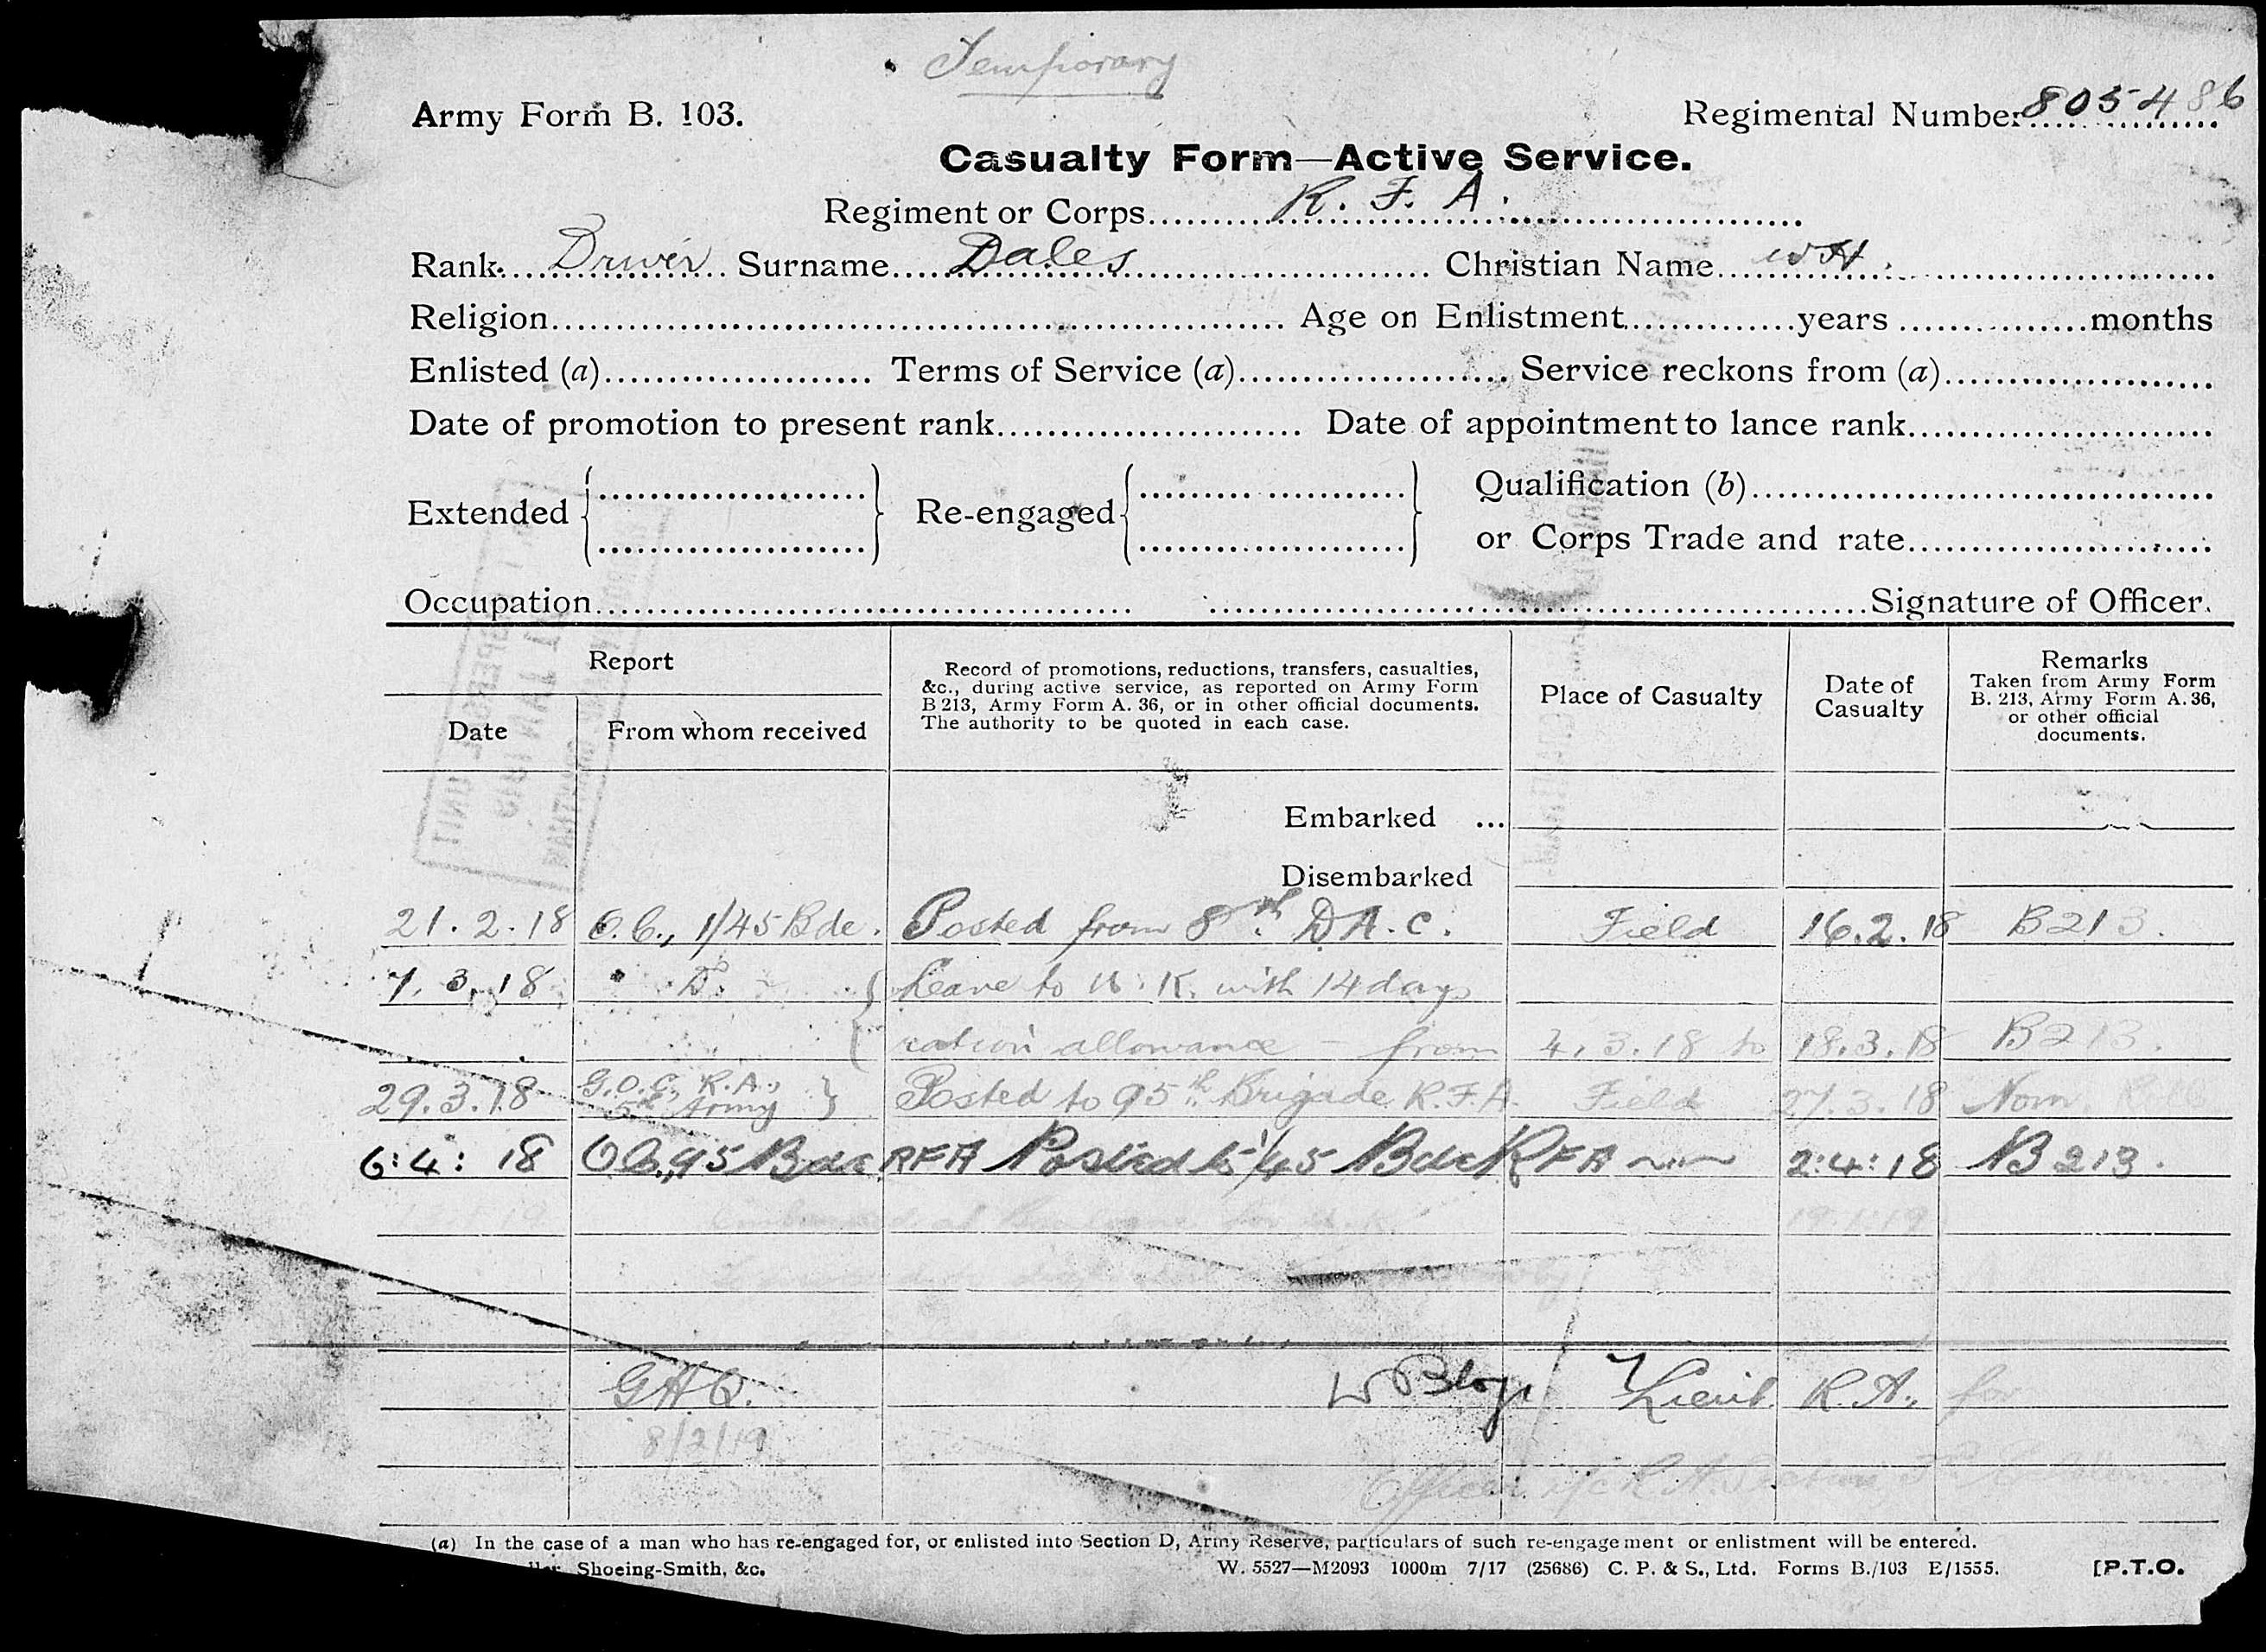 Temporary
Army Form B. 103.
Regimental Number 805486
Casualty Form—Active Service.
Regiment or Corps R. F. A.
Rank Driver Surname Dales Christian Name W H.
Religion Age on Enlistment years months
Enlisted (a) Terms of Service (a) Service reckons from (a)
Date of promotion to present rank Date of appointment to lance rank
Extended Re-engaged Qualification (b)
or Corps Trade and rate
Occupation Signature of Officer.
Report
Date
From whom received
Record of promotions, reductions, transfers, casualties,
&c., during active service, as reported on Army Form
B 213, Army Form A. 36, or in other official documents.
The authority to be quoted in each case.
Place of Casualty
Date of
Casualty
Remarks
Taken from Army Form
B. 213, Army Form A. 36,
or other official
documents.
Embarked ...
Disembarked
21.2.18 O.C., 1/45 Bde. Posted from 8th D.A.C. Field 16.2.18 B213.
7.3.18 Do. Leave to U.K. with 14 days
ration allowance – from 4.3.18 to 18.3.18 B213.
29.3.18 G.O.C., R.A., 5th Army Posted to 95th Brigade R.F.A. Field 27.3.18 Nom. Roll
6:4:18 OC, 95 Bde RFA Posted to 45 Bde RFA 2:4:18 B213.
Embarked at Boulogne for U.K. 19.1.19
GHQ. Lieut. R.A. for
8/2/19
Officer i/c R.A. Section
(a) In the case of a man who has re-engaged for, or enlisted into Section D, Army Reserve, particulars of such re-engagement or enlistment will be entered.
Shoeing-Smith, &c. W. 5527—M2093 1000m 7/17 (25686) C. P. & S., Ltd. Forms B./103 E/1555. [P.T.O.